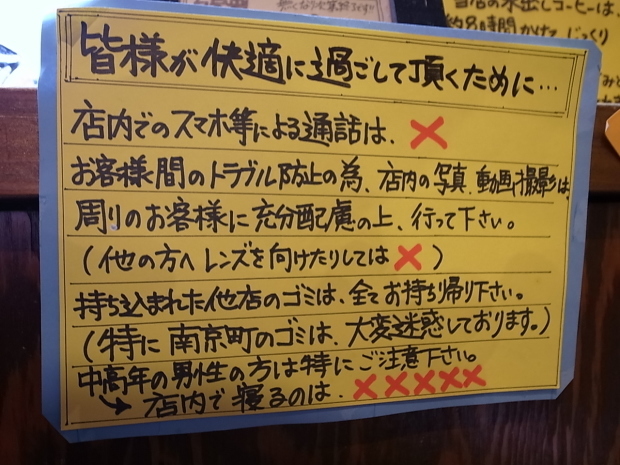 皆様が快適に過ごして頂くために…
店内でのスマホ等による通話は、×
お客様間のトラブル防止の為、店内の写真、動画撮影は、
周りのお客様に充分配慮の上、行って下さい。
(他の方へレンズを向けたりしては×)
持ち込まれた他店のゴミは、全てお持ち帰り下さい。
(特に南京町のゴミは、大変迷惑しております。)
中高年の男性の方は特にご注意下さい。
→店内で寝るのは、×××××
当店の水出しコーヒーは、
約8時間かけて じっくり